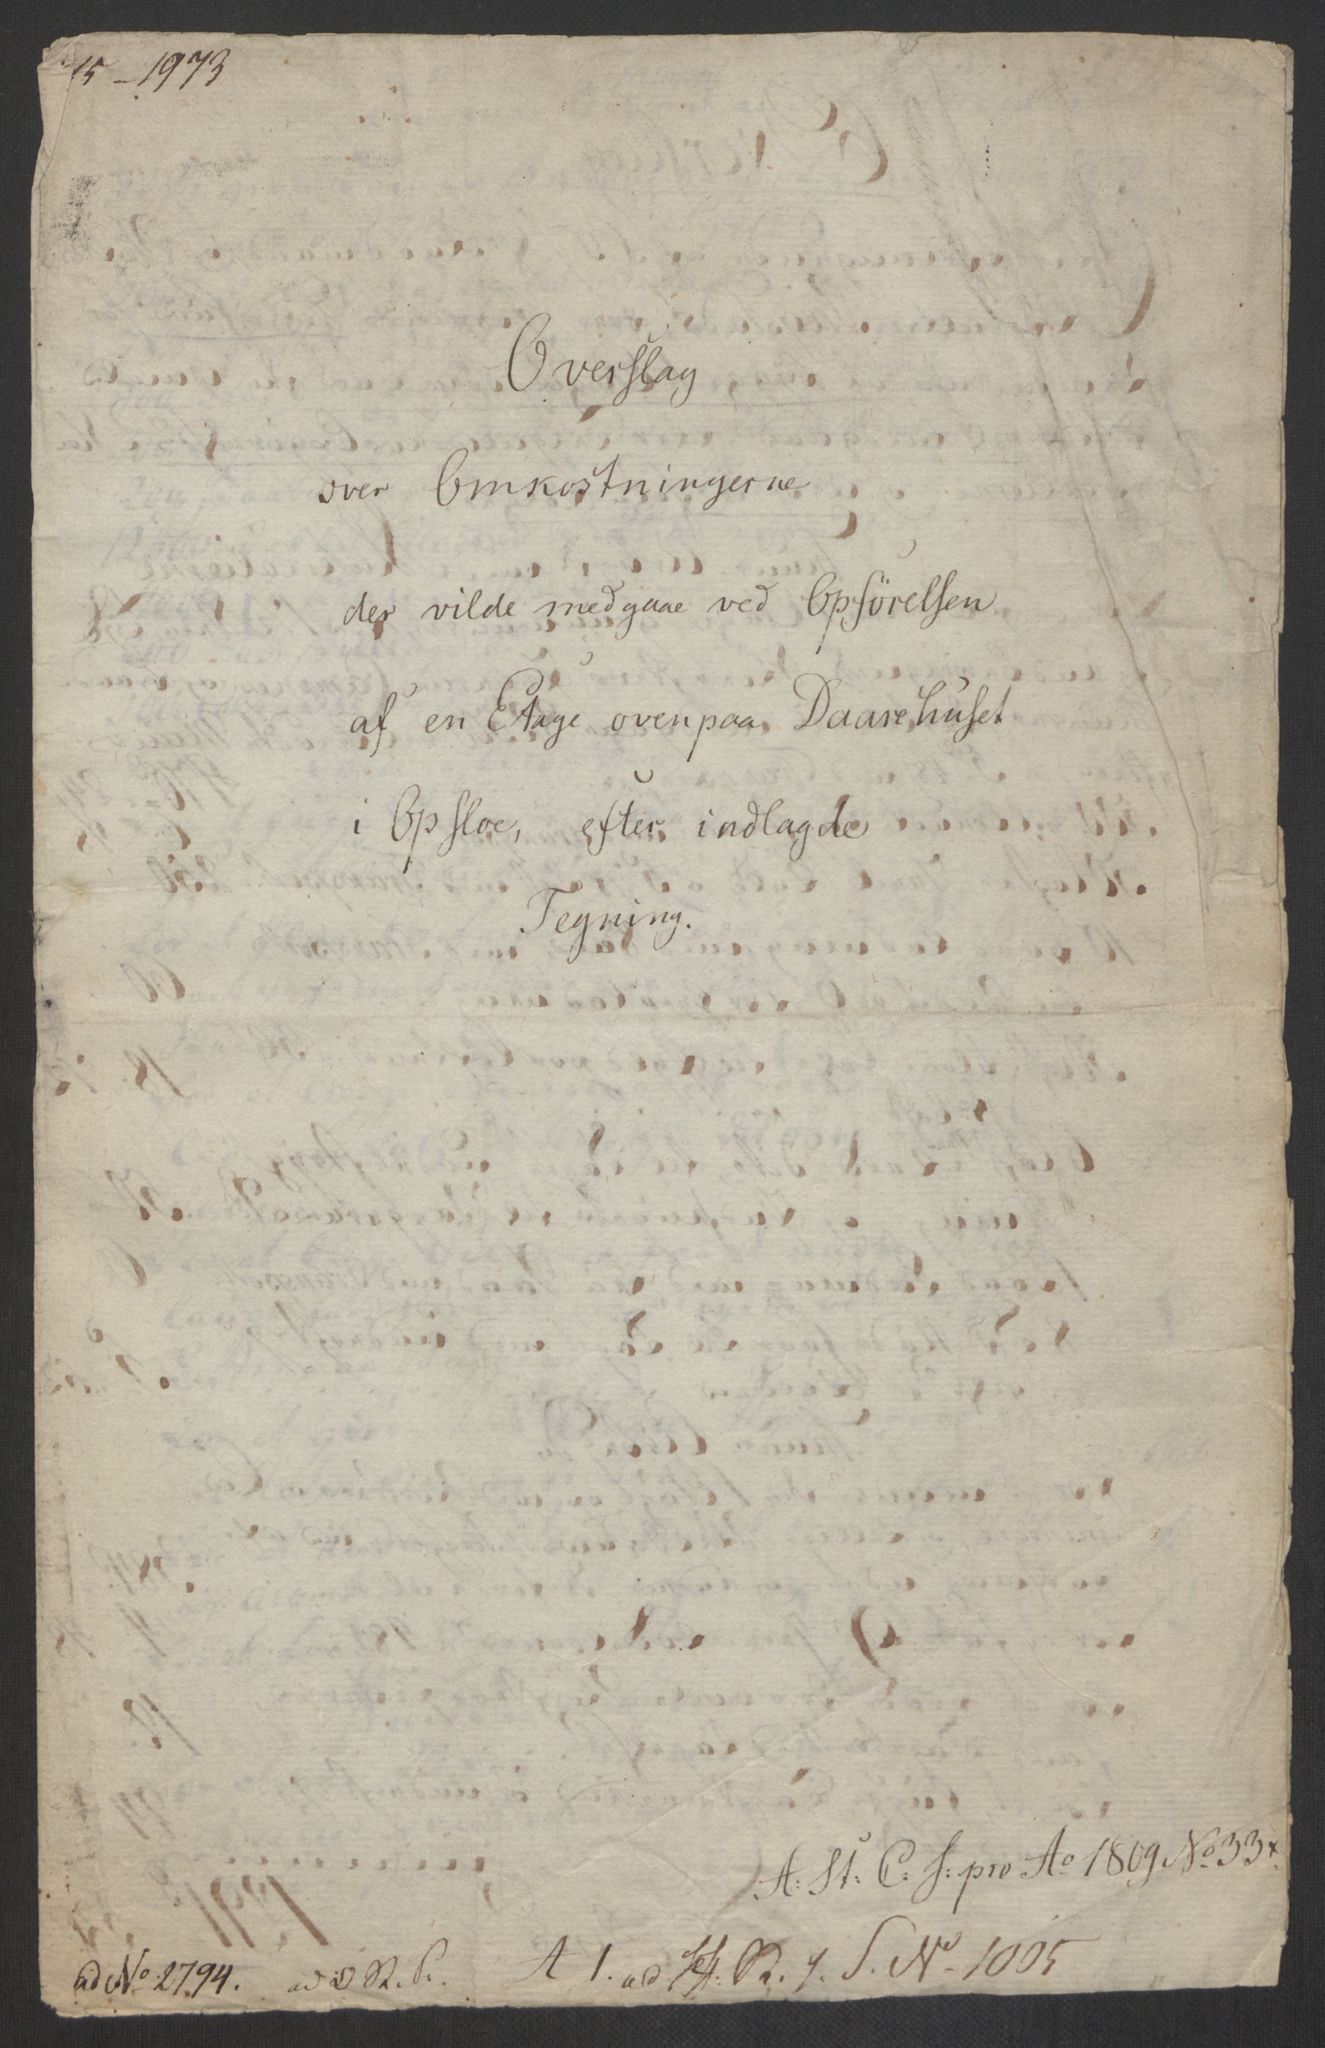 15 - 1973
Overslag
over Omkostningerne
der vilde medgaae ved Opförelsen
af en Etage ovenpaa Daarehuset
i Opsloe, efter indlagde
Tegning.
A: St: C: J: pro Ao 1809 No 33
ad No 2794.
A 1. ad R. J. No 1005